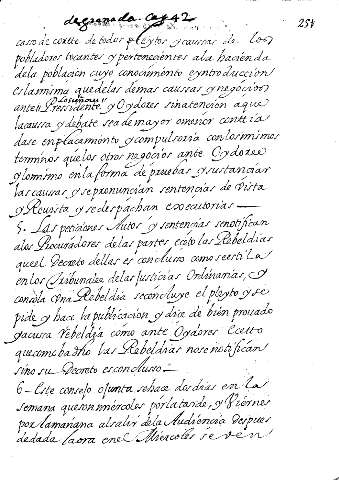 de granada caj 42
251
caso de corte de todos pleytos y caussas de los
pobladores tocantes y pertenecientes a la hacienda
de la poblacion cuyo conocimiento e yntroduccion
es la misma que de las demas caussas y negocios
ante los señores Presidente y Oydores sin atencion a que
la caussa y debate sea de mayor o menor contia
dase enplacamento y compulsoria con los mismos
terminos que los otros negocios ante Oydores
y lo mismo en la forma de pruebas, y sustanciar
las causas y se pronuncian sentencias de Vista
y Revista y se despachan executorias —
5. Las peticiones Autos y sentencias se notifican
a los Procuradores de las partes e las Rebeldias
que el Decreto dellas es concluso como se estila
en los Tribunales de las Justicias Ordinarias, y
con sola Una Rebeldia se concluye el pleyto y se
pide y hace la publicacion y dice de bien provado
y acussa rebeldia como ante Oydores
que como ha dho las Rebeldias no se notifican
sino su Decreto es concluso —
6 - Este consejo o junta se hace dos dias en la
semana que son miercoles por la tarde, y Viernes
por la mañana al salir de la Audiencia despues
de dada la ora en el Miercoles se ven